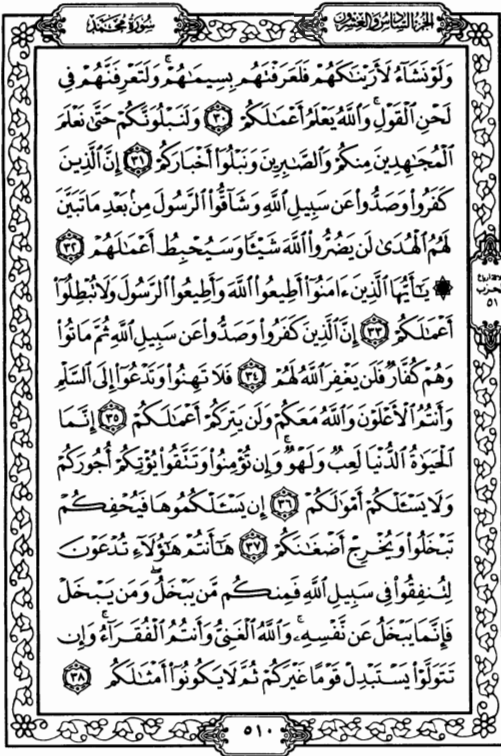 سورة محمد
الجزء السادس والعشرون
وَلَوْ نَشَآءُ لَأَرَيْنَٰكَهُمْ فَلَعَرَفْتَهُم بِسِيمَٰهُمْ ۚ وَلَتَعْرِفَنَّهُمْ فِى
لَحْنِ ٱلْقَوْلِ ۚ وَٱللَّهُ يَعْلَمُ أَعْمَٰلَكُمْ ٣٠ وَلَنَبْلُوَنَّكُمْ حَتَّىٰ نَعْلَمَ
ٱلْمُجَٰهِدِينَ مِنكُمْ وَٱلصَّٰبِرِينَ وَنَبْلُوَا۟ أَخْبَارَكُمْ ٣١ إِنَّ ٱلَّذِينَ
كَفَرُوا۟ وَصَدُّوا۟ عَن سَبِيلِ ٱللَّهِ وَشَآقُّوا۟ ٱلرَّسُولَ مِنۢ بَعْدِ مَا تَبَيَّنَ
لَهُمُ ٱلْهُدَىٰ لَن يَضُرُّوا۟ ٱللَّهَ شَيْـًٔا وَسَيُحْبِطُ أَعْمَٰلَهُمْ ٣٢
۞ يَٰٓأَيُّهَا ٱلَّذِينَ ءَامَنُوٓا۟ أَطِيعُوا۟ ٱللَّهَ وَأَطِيعُوا۟ ٱلرَّسُولَ وَلَا تُبْطِلُوٓا۟
أَعْمَٰلَكُمْ ٣٣ إِنَّ ٱلَّذِينَ كَفَرُوا۟ وَصَدُّوا۟ عَن سَبِيلِ ٱللَّهِ ثُمَّ مَاتُوا۟
وَهُمْ كُفَّارٌ فَلَن يَغْفِرَ ٱللَّهُ لَهُمْ ٣٤ فَلَا تَهِنُوا۟ وَتَدْعُوٓا۟ إِلَى ٱلسَّلْمِ
وَأَنتُمُ ٱلْأَعْلَوْنَ وَٱللَّهُ مَعَكُمْ وَلَن يَتِرَكُمْ أَعْمَٰلَكُمْ ٣٥ إِنَّمَا
ٱلْحَيَوٰةُ ٱلدُّنْيَا لَعِبٌ وَلَهْوٌ ۚ وَإِن تُؤْمِنُوا۟ وَتَتَّقُوا۟ يُؤْتِكُمْ أُجُورَكُمْ
وَلَا يَسْـَٔلْكُمْ أَمْوَٰلَكُمْ ٣٦ إِن يَسْـَٔلْكُمُوهَا فَيُحْفِكُمْ
تَبْخَلُوا۟ وَيُخْرِجْ أَضْغَٰنَكُمْ ٣٧ هَٰٓأَنتُمْ هَٰٓؤُلَآءِ تُدْعَوْنَ
لِتُنفِقُوا۟ فِى سَبِيلِ ٱللَّهِ فَمِنكُم مَّن يَبْخَلُ ۖ وَمَن يَبْخَلْ
فَإِنَّمَا يَبْخَلُ عَن نَّفْسِهِۦ ۚ وَٱللَّهُ ٱلْغَنِىُّ وَأَنتُمُ ٱلْفُقَرَآءُ ۚ وَإِن
تَتَوَلَّوْا۟ يَسْتَبْدِلْ قَوْمًا غَيْرَكُمْ ثُمَّ لَا يَكُونُوٓا۟ أَمْثَٰلَكُم ٣٨
٥١
٥١٠